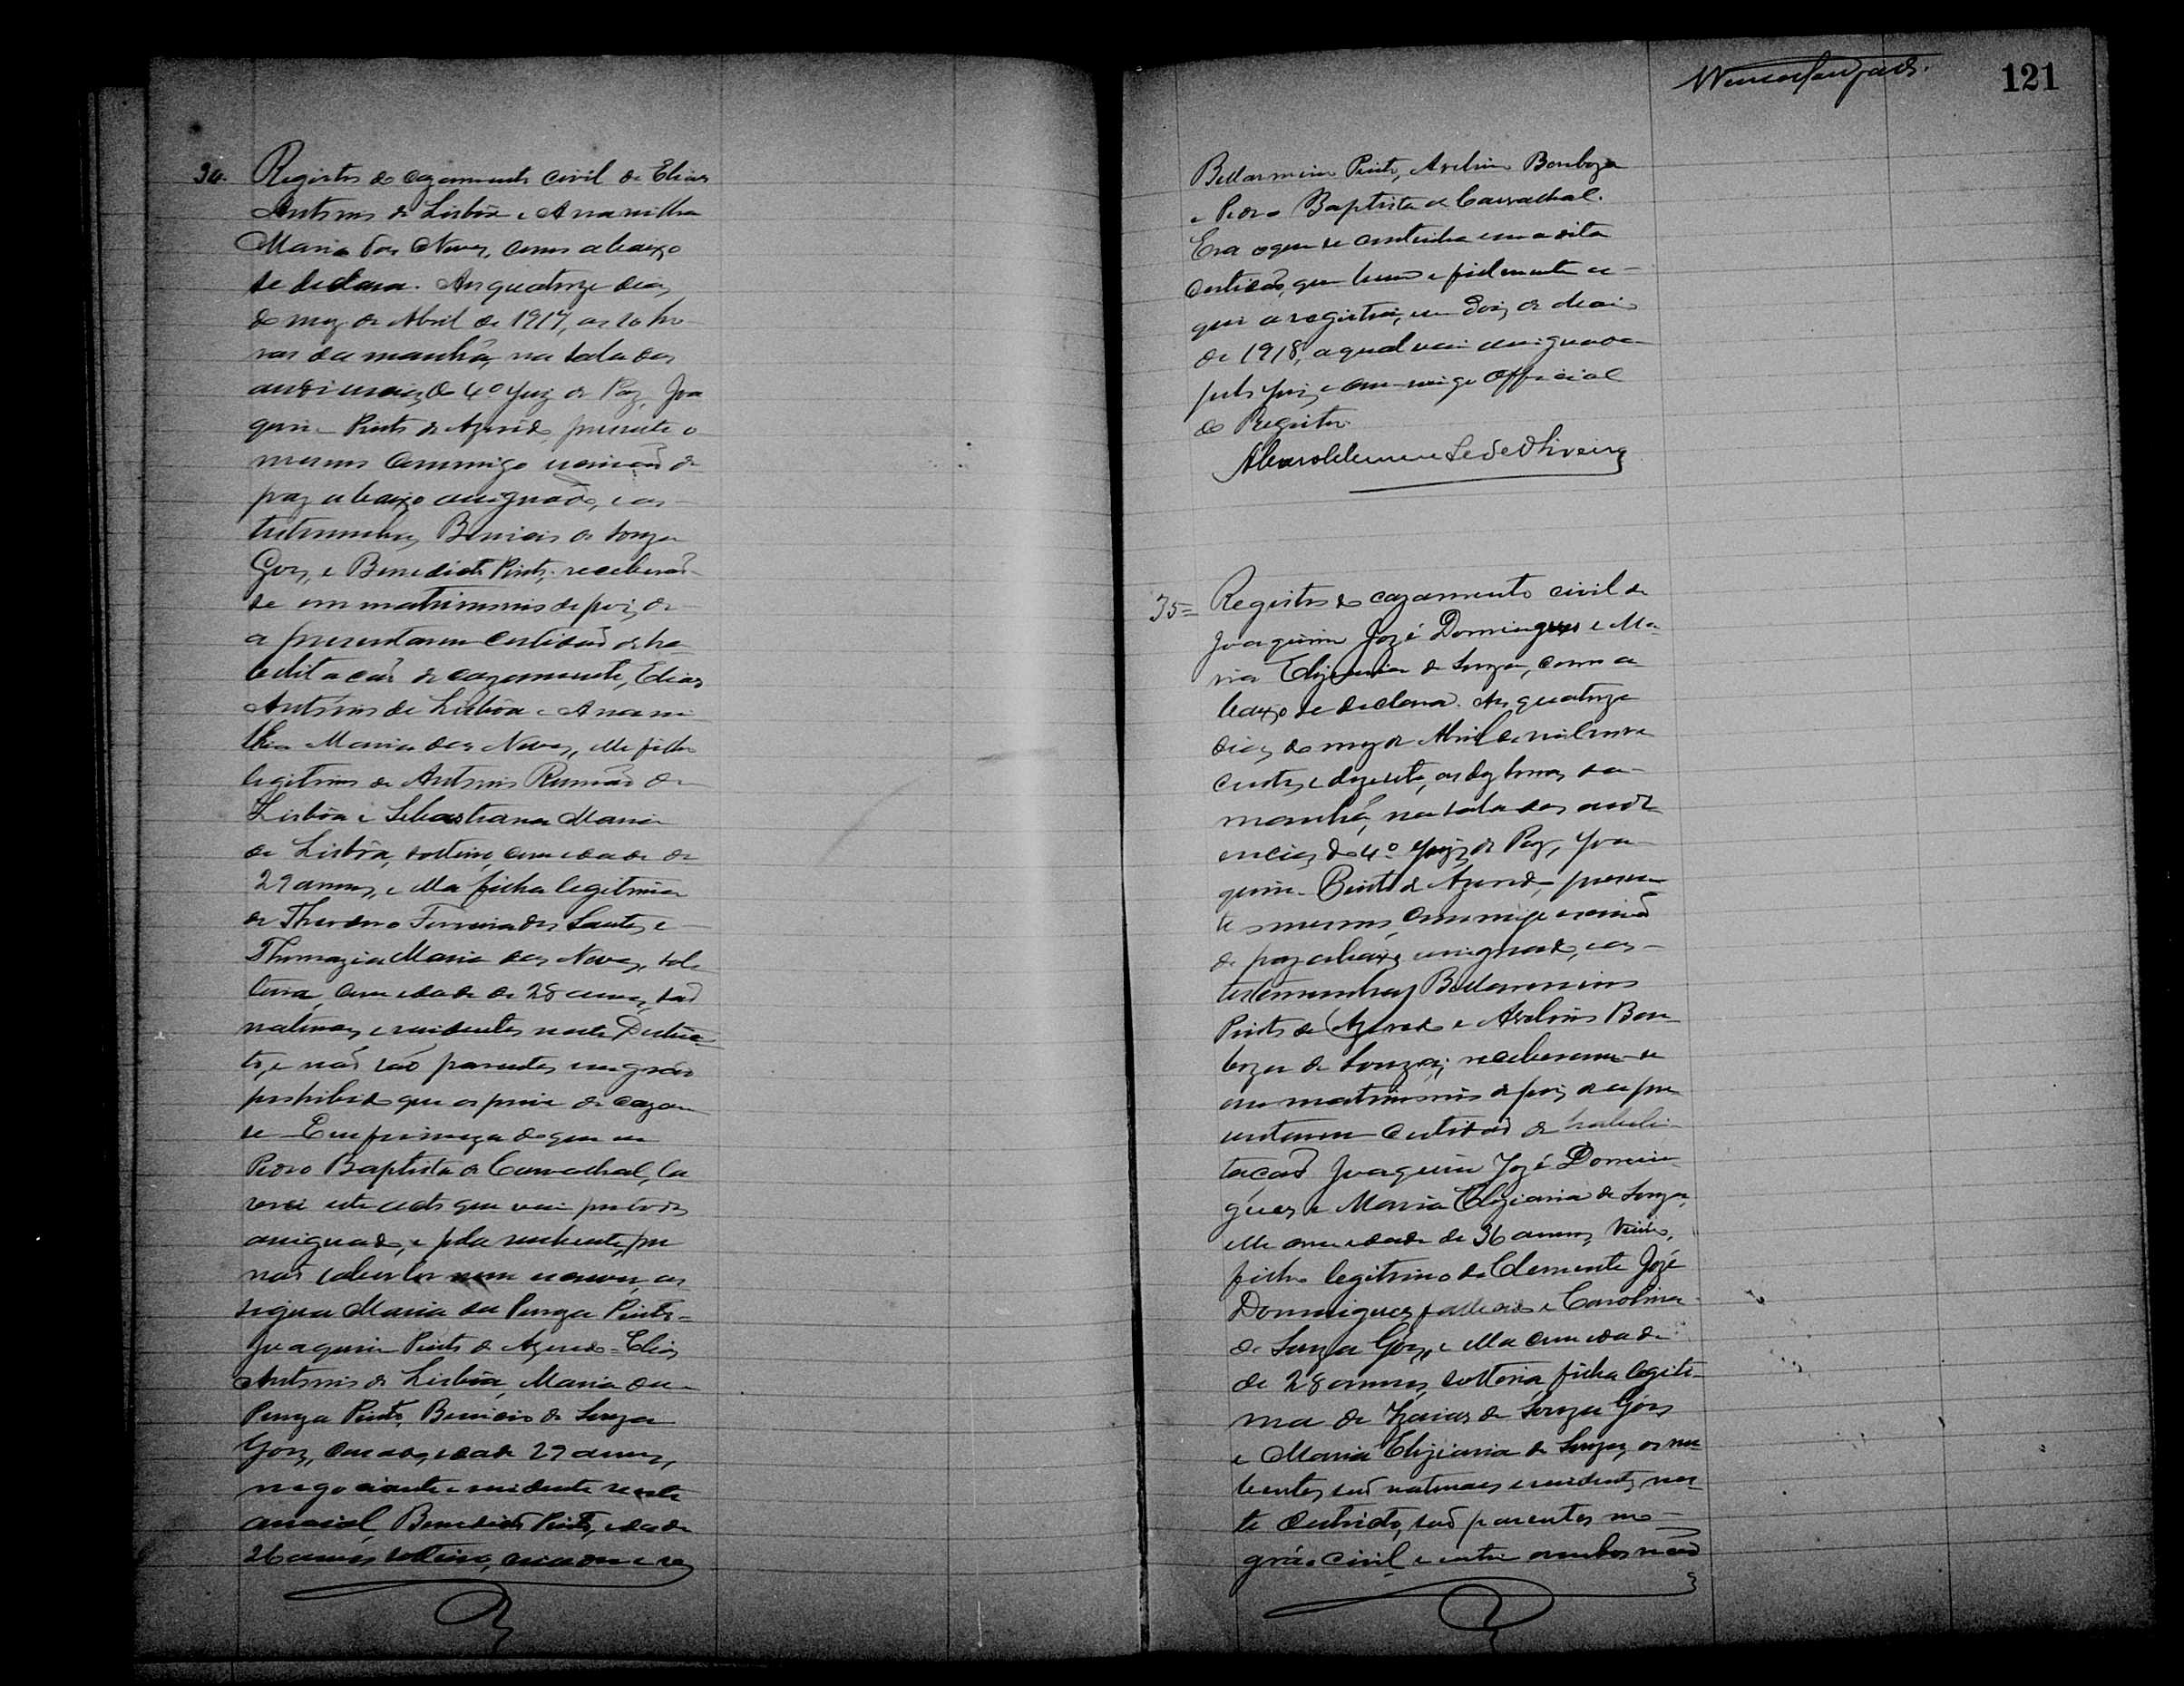 34. Registro do cazamento civil de Elias
Antonio de Lisbôa e Anarilha
Maria das Neves, como abaixo
se declara. Aos quatorze dias
do mez de Abril de 1917, as 10 ho
ras da manhã, na sala das
audiencias do 4º Juiz de Paz, Joa
quim Pinto de Azevêdo, presente o
mesmo commigo escrivão de
paz abaixo assignado, e as
testemunhas Benicio de Souza
Goes, e Benedicto Pinto; receberão
se em matrimonio depois de
apresentarem certidão de ha
bilitacão de cazamento, Elias
Antônio de Lisbôa e Anari
lha Maria das Neves, elle filho
legitimo de Antonio Rumão de
Lisbôa e Sebastiana Maria
de Lisbôa, solteiro, com idade de
29 annos, e ella filha legitima
de Theodoro Ferreira dos Santos e
Thomazia Maria das Neves, sol
teira, com idade de 28 annos, são
naturaes e residentes neste Distric
to, e não são parentes em gráo
prohibido que os prive de cazar
se. Em firmeza do que eu
Pedro Baptista de Carvalhal, la
vrei este acto que vai por todos
assignado, e pela nubente, por
não saber ler nem escrever, as
signa Maria da Pureza Pinto =
Joaquim Pinto de Azevedo = Elias
Antonio de Lisbôa, Maria da
Pureza Pinto, Benicio de Souza
Goes, casado, idade 29 annos,
negociante e residente neste
arraial, Benedicto Pinto, idade
26 annos, solteiro,
121
Bellarmino Pinto, Avelino Barboza
e Pedro Baptista de Carvalhal.
Era o que se continha em a dita
certidão, que bem e fielmente a
qui a registrei, em dois de
de 1918, a qual vai assignada
pelo Juiz, e commigo Official
do Registro.
de Oliveira
35= Registro do cazamento civil de
Joaquim Jozé Domingues e Ma
ria Eliziaria de Souza, como a
baixo se declara. Aos quatorze
dias do mez de Abril de mil nove
centos e dezesete, as dez horas da
manhã, na sala das audi
encias do 4º Juiz de Paz, Joa
quim Pinto de Azevedo, presen
te o mesmo, commigo escrivão
de paz abaixo assignado, e as
testemunhas Bellarmino
Pinto de Azevedo e Avelino Bar
boza de Souza; receberam-se
em matrimonio depois de apre
sentarem certidão de habili
tacão Joaquim Jozé Domin
gues e Maria Eliziaria de Souza,
elle com idade de 36 annos, viuvo,
filho legitimo de Clemente Jozé
Domingues, fallecido e Carolina
de Souza Góes, e ella com idade
de 28 annos, solteira, filha legiti
ma de Izaias de Souza Góes
e Maria Eliziaria de Souza, os nu
bentes são naturaes e residentes nes
te districto, são parentes no
gráo civil e entre ambos não